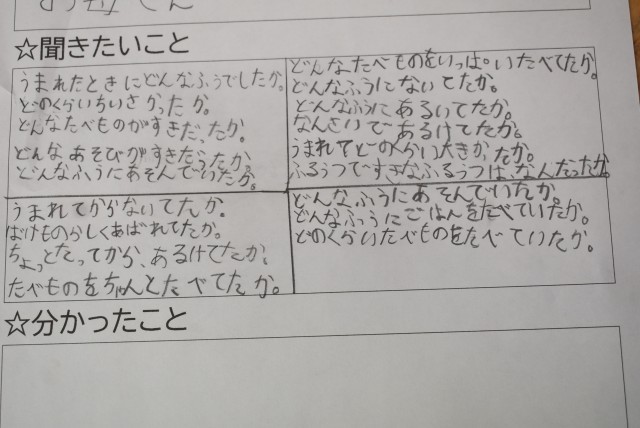 ☆聞きたいこと
うまれたときにどんなふうでしたか。
どのくらいちいさかったか。
どんなたべものがすきだったか。
どんなあそびがすきだったか
どんなふうにあそんでいたか。
どんなたべものをいっぱいたべてたか。
どんなふうにないてたか。
どんなふうにあるいてたか。
なんさいであるけてたか。
うまれてどのくらい大きかったか。
ふるうつですきなふるうつは、なんだったか
うまれてからないてたか。
ばけものらしくあばれてたか。
ちょっとたってから、あるけてたか。
たべものをちゃんとたべてたか。
どんなふうにあそんでいたか。
どんなふうにごはんをたべていたか。
どのくらいたべものをたべていたか。
☆分かったこと